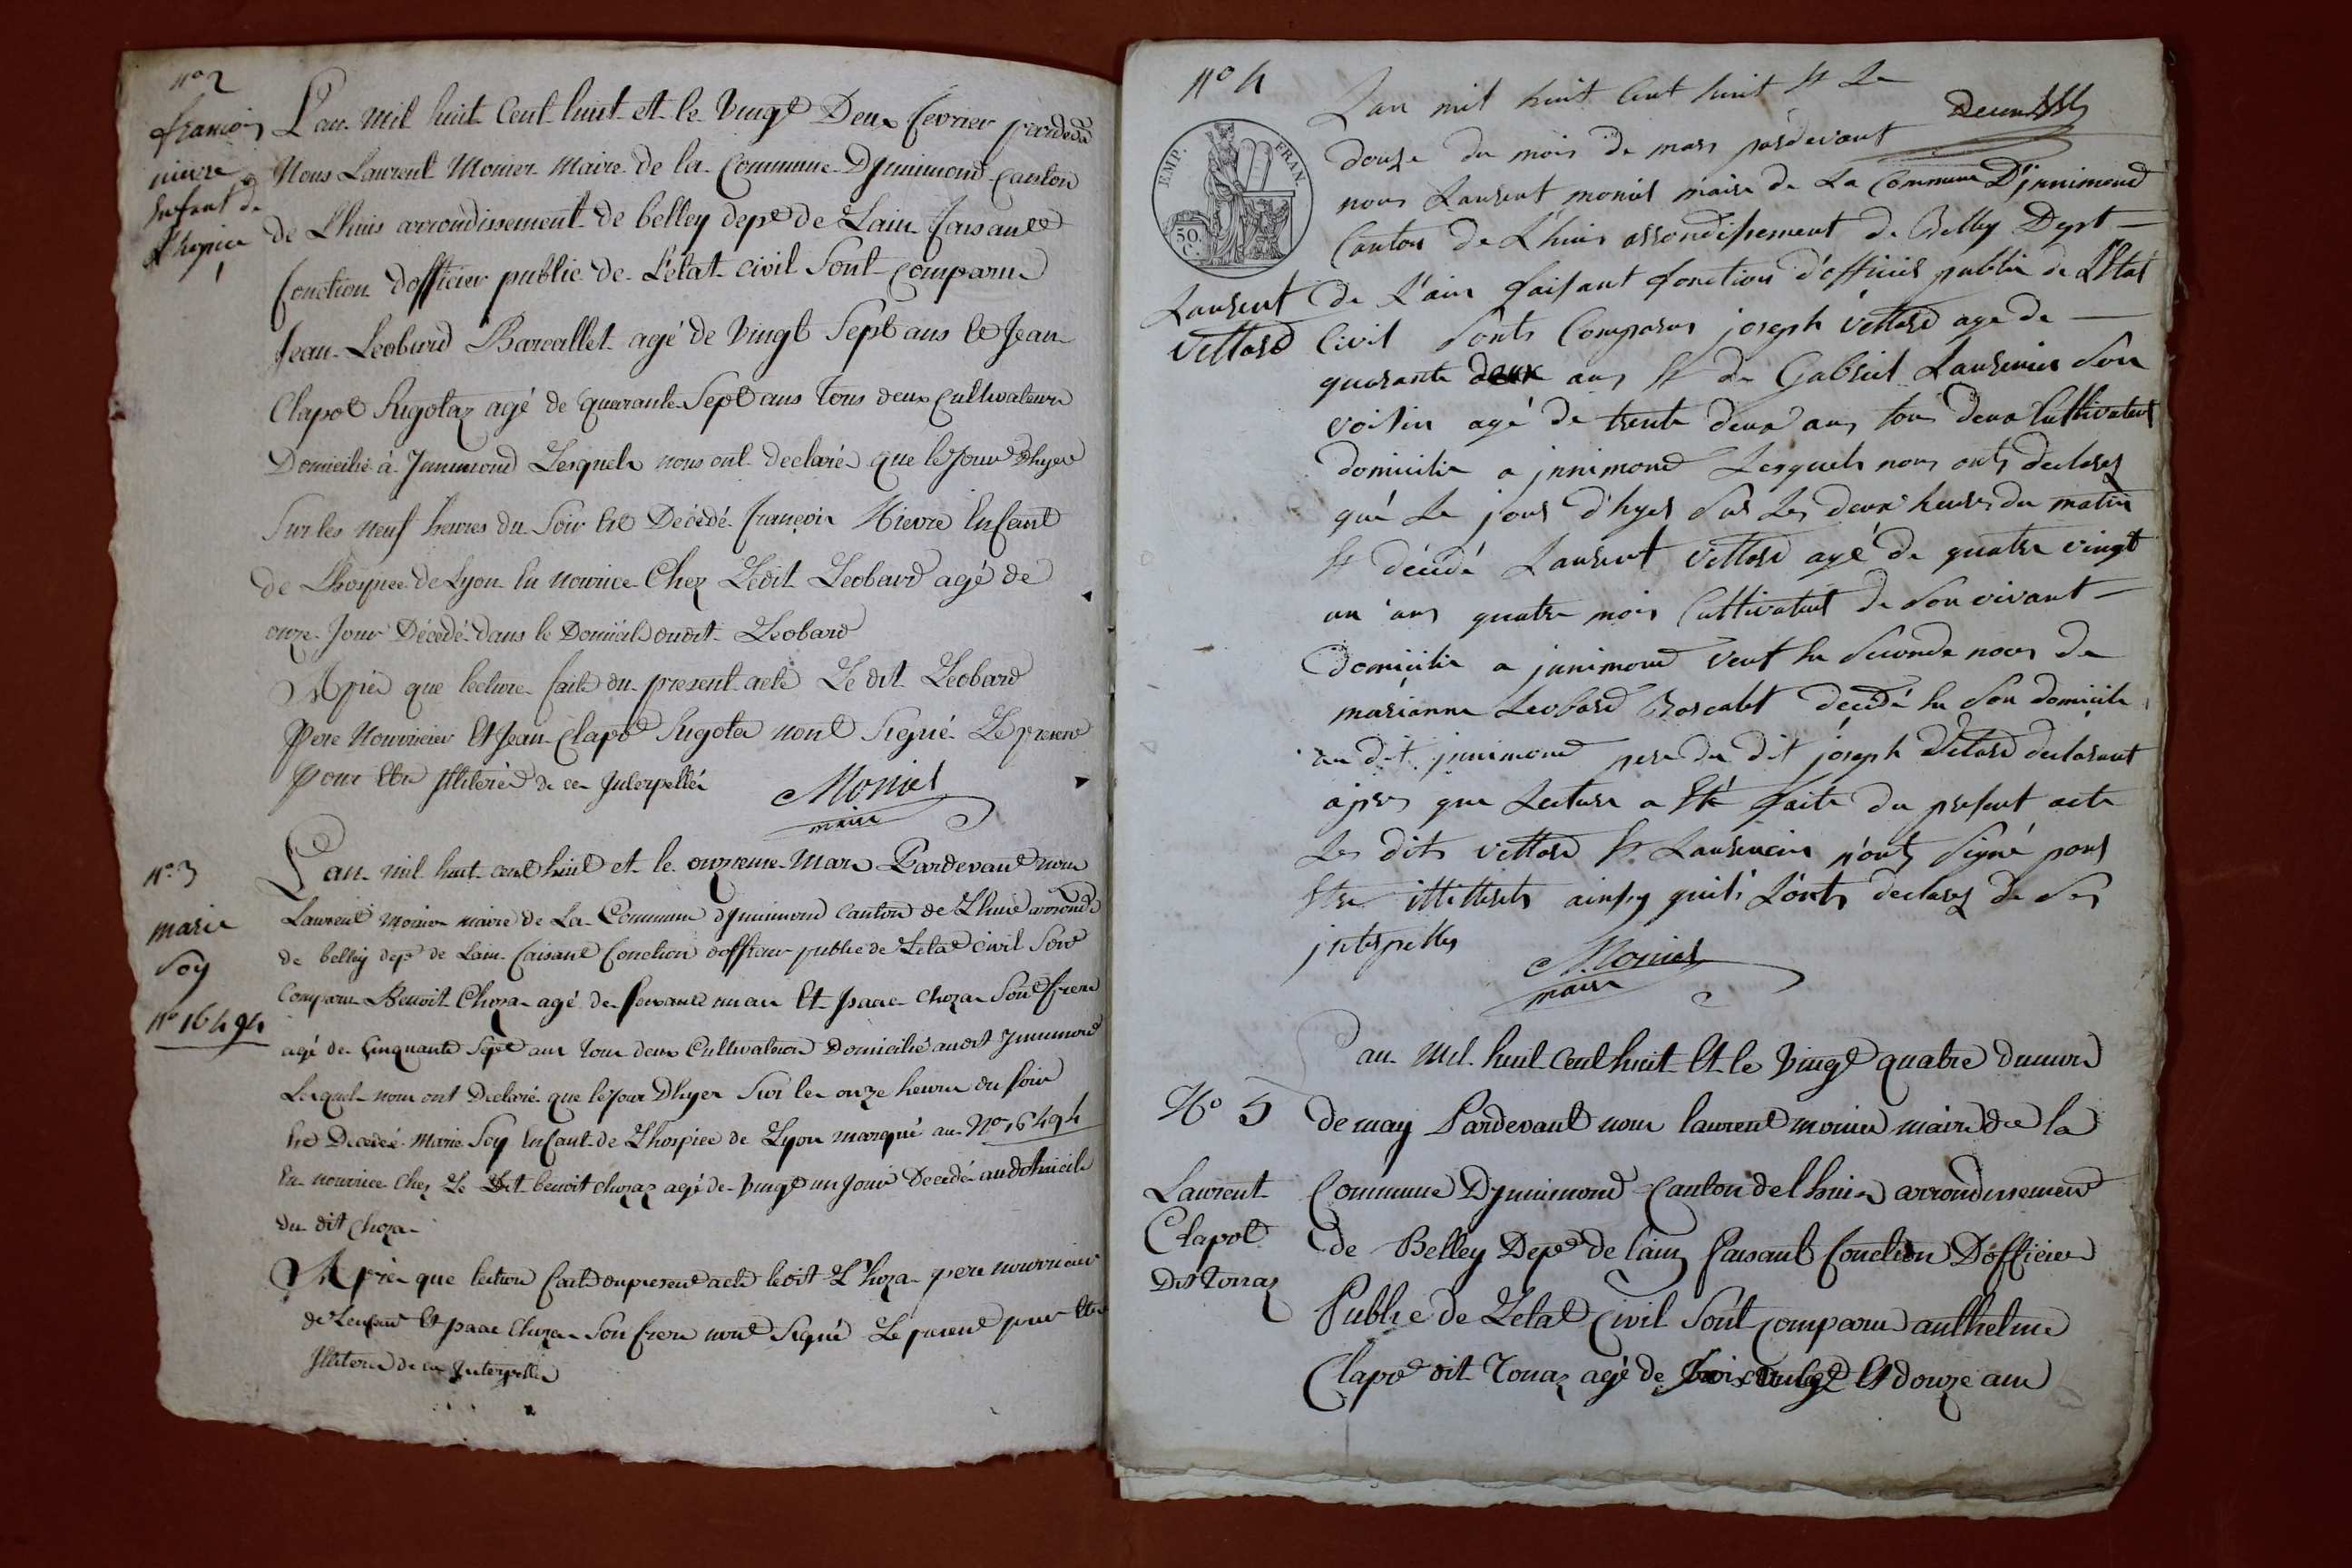 n° 2
françois
nievre
enfant de
l'hospice
L'an mil huit cent huit et le vingt Deux fevrier pardevt
Nous Laurent Monier maire de la Commune Dynnimond Canton
de Lhuis arrondissement de belley dept de Lain faisant
fonction dofficier public de L'etat civil Sont comparu
Jean Leobard Barcallet agé de vingt Sept ans et Jean
Clapot Rigolaz agé de quarante Sept ans tous deux Cultivateurs
Domicilié à Innimond Lesquels nous ont declaré que le jour Dhyer
Sur les neuf heures du Soir est Decédé françois Nievre Enfant
de Lhospice de Lyon en nourrice Chez Ledit Leobard agé de
onze Jour Décédé dans le Domicile dudit Leobard
Aprés que lecture faite du present acte Le dit Leobard
Pere Nourricier et Jean Clapot Rigola nont Signé Le present
pour etre Illiteré de ce Interpellé
Monier
maire
n° 3
marie
soy
n° 16494
L'an mil huit cent huit et le onzieme Mars Pardevant nous
Laurent Monier maire de La Commune dynnimond Canton de Lhuis arrondt
de belley dept de Lain faisant fonction dofficier public de Letat civil Sont
comparu Benoit Choza agé de soixante un an et Isaac Choza Son frere
agé de Cinquante Sept ans tous deux Cultivateurs Domicilié audit Innimond
Lesquels nous ont Declaré que le jour Dhyer Sur les onze heures du soir
est Decedé Marie Soy Enfant de Lhospice de Lyon marqué au N° 16494
En nourrice Chez Le Dit benoit chozaz agé de vingt un Jour Decedé au domicile
du dit Choza
Aprés que lecture faite du present acte ledit Choza pere nourricier
de Lenfant et Isaac Choza Son frere nont Signé Le present pour etre
Illiteré de ce Interpellé
n° 4
EMP. FRAN.
50. C.
Laurent
Vettard
L'an mil huit cent huit et Le
douze du mois de mars pardevant
nous Laurent monier maire de La Commune D'jnnimond
Canton de L'huis arrondissement de Belley Dept
de L'ain faisant fonction d'officier public de L'Etat
Civil Sonts Comparus joseph vettard age de
quarante deux ans et de Gabriel Laurencin Son
voisin agé de trente deux ans tous deux Cultivateurs
domicilie a jnnimond Lesquels nous onts declarez
qué Le jour d'hyer Sur Les deux heures du matin
et décédé Laurent vettard agé de quatre vingt
un ans quatre mois Cultivateur de Son vivant
domicilie a jnnimond veuf en Seconde noces de
marianne Leobard Barcalet décédé en Son domicile
au dit jnnimond pere du dit joseph Vettard declarant
apres que Lecture a Eté faite du present acte
Les dits vettard et Laurencin n'onts Signé pour
Etre illitterets ainsy quils L'onts declarez de Ses
jnterpelles
Monier
maire
N° 5
Laurent
Clapot
Dit Tonaz
L'an Mil huit cent huit et le vingt quatre du mois
de may Pardevant nous laurent monier maire de la
Commune Dynnimond Canton de lhuis arrondissement
de Belley Dept de lain faisant fonction Dofficier
Public de Letat Civil Sont comparu anthelme
Clapot dit Tonaz agé de Et douze ans